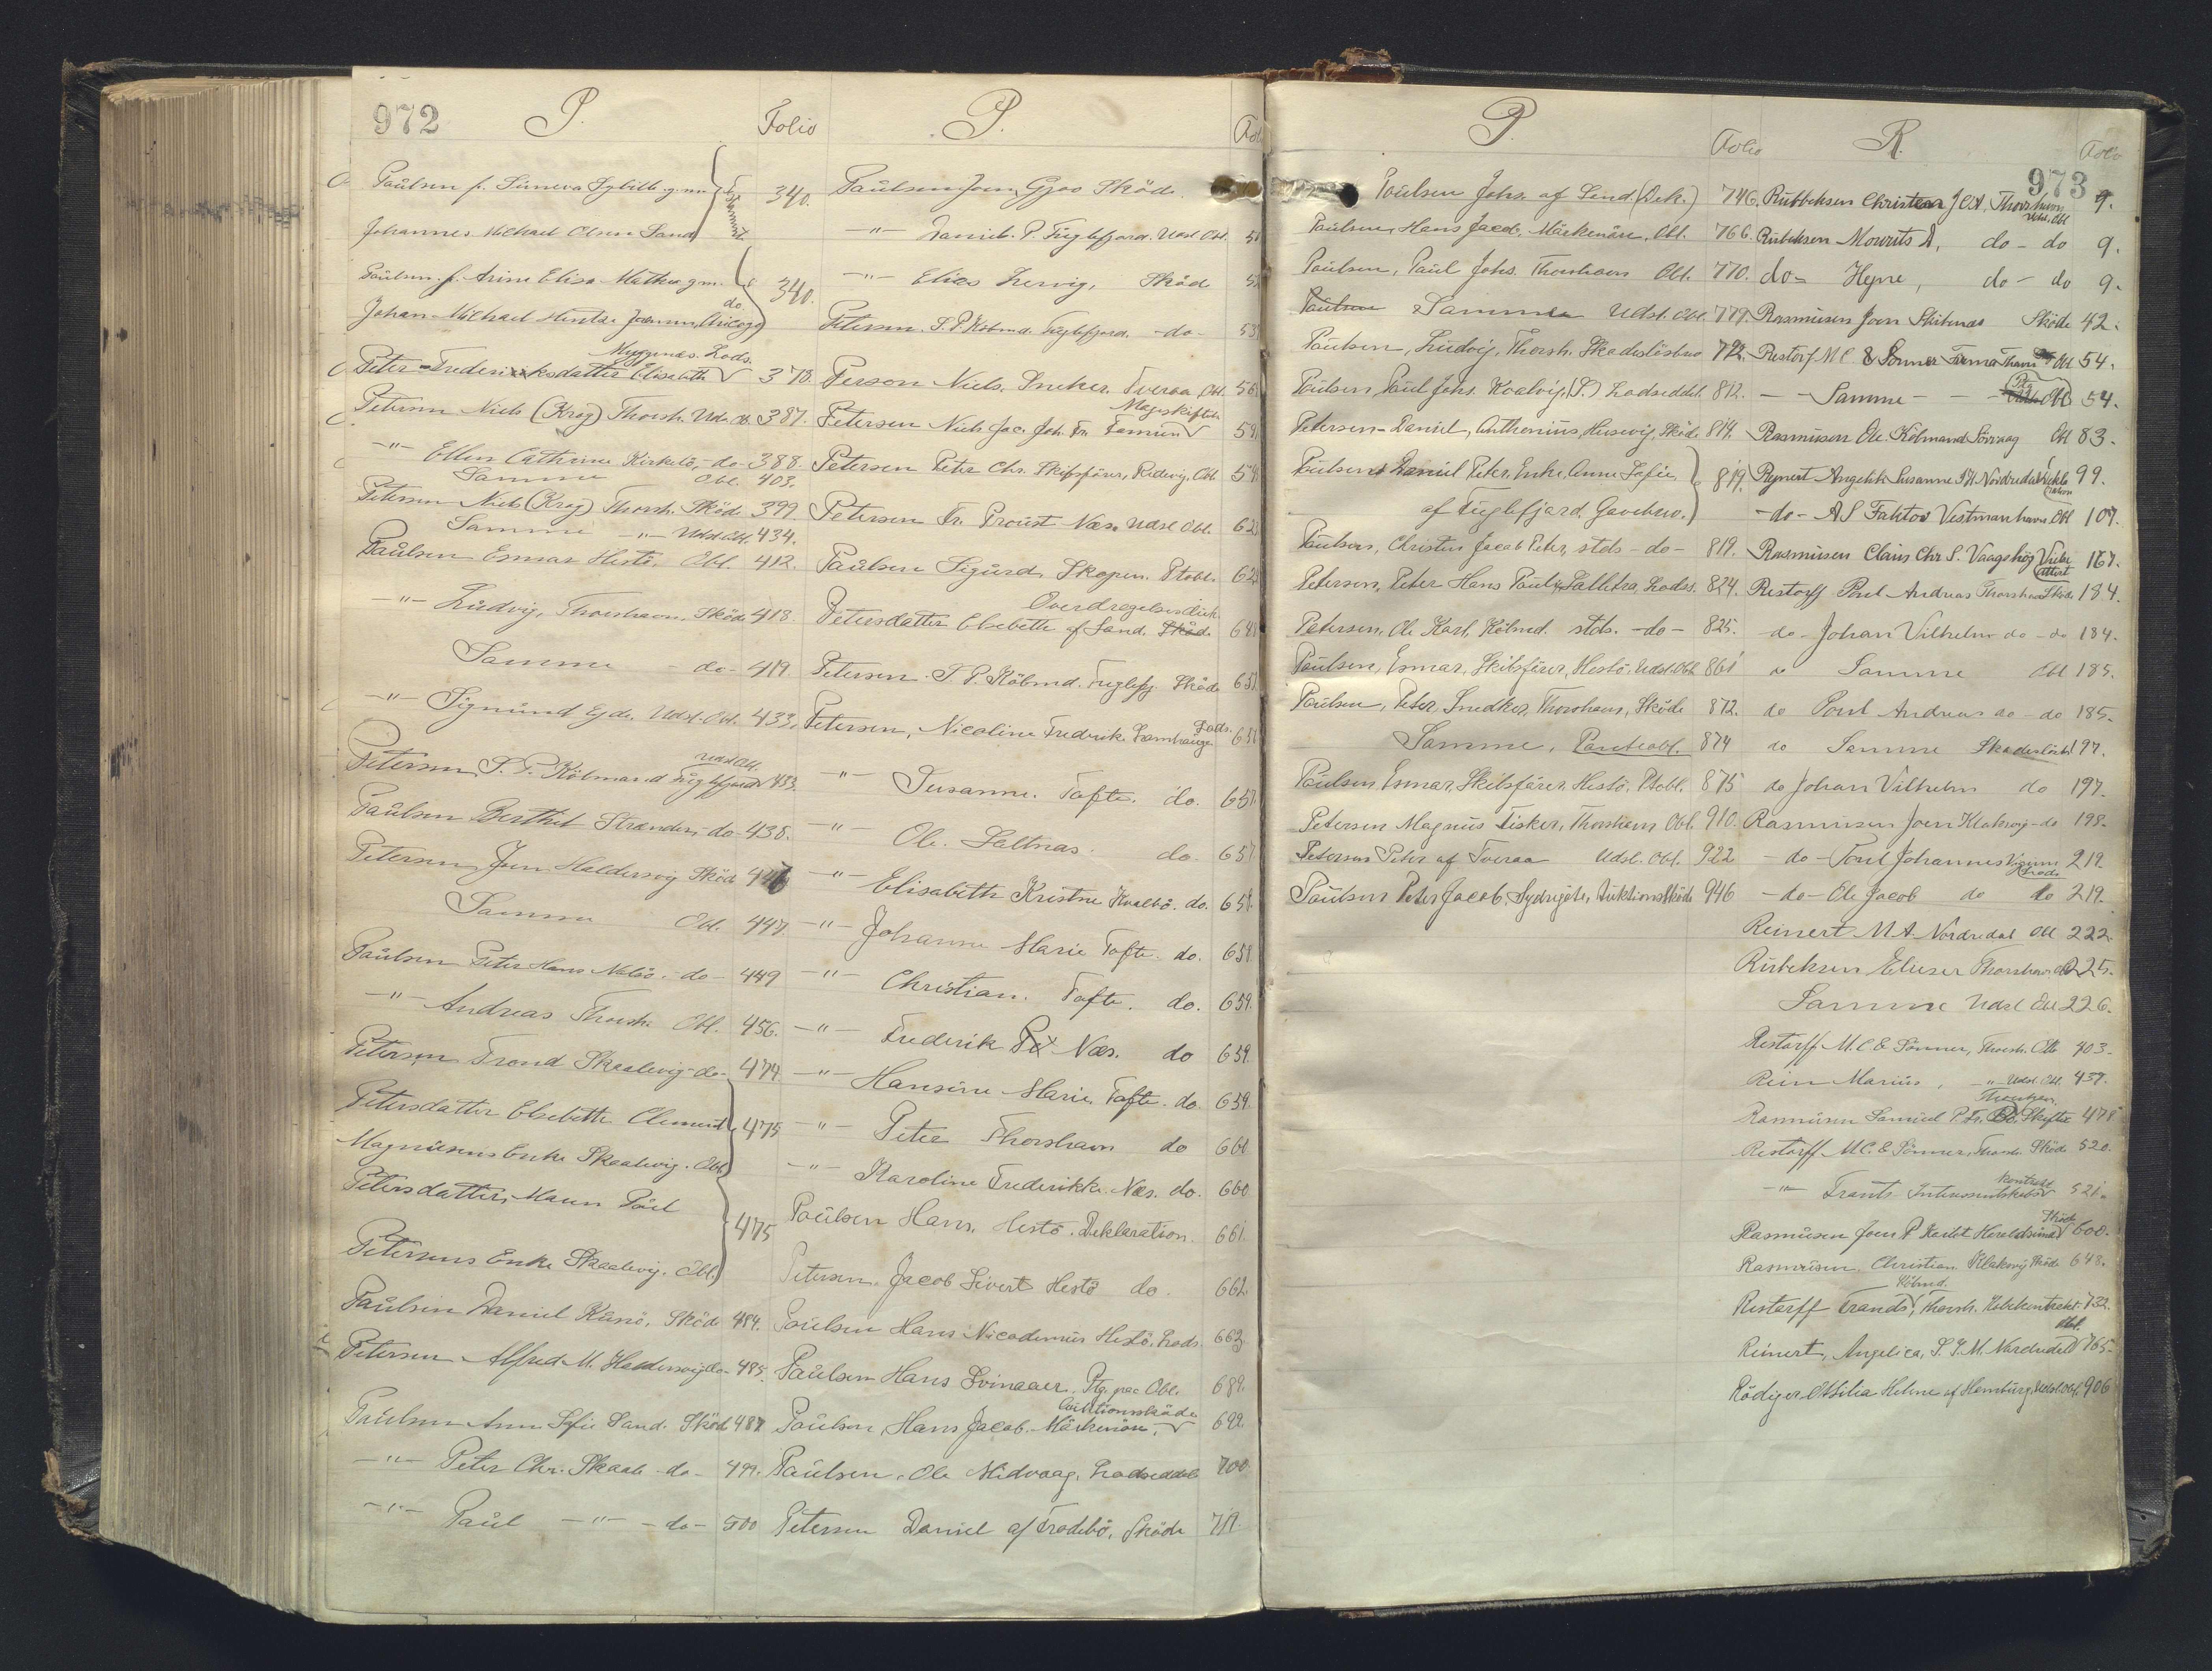 972 P. Folio
Paulsen f. Sunneva Sybille g. m.
Johannes Michael Olsen Sand 340.
Paulsen f. Arine Elisa Mathea g. m.
Johan Michael Hentze Joensen, Chicago do 340.
Myggenæs. Lods.
Peter-Frederiksdatter Elisabeth 378.
Petersen Niels (Krog) Thorsh. Uds. Ob. 387.
-"- Ellen Cathrine Kirkebö, - do - 388.
Samme Obl. 403.
Petersen Niels (Krog) Thorsh. Sköde 399.
Samme -"- Udsl. Obl. 434.
Paulsen Esmar Hestö. Obl. 412.
-"- Ludvig, Thorshavn. Sköde 418.
Samme - do - 419.
-"- Sigmund Ejde. Udsl. Obl. 433.
Udsl. Obl.
Petersen S. P. Købmand Fuglefjord 433.
Paulsen Berthel Strænder, - do - 438.
Petersen Joen Haldersvig Sköde
Samme Obl. 447.
Paulsen Peter Hans Nolsö. - do - 449
-"- Andreas Thorsh. Obl. 456.
Petersen Trond Skaalevig - do - 474.
Petersdatter Elsebeth Clement
Magnusens Enke Skaalevig. Obl. 475
Petersdatter, Maren Poul
Petersens Enke Skaalevig. Obl. 475
Paulsen Daniel Kunö, Sköde 484.
Petersen Alfred M. Haldersvig do - 485.
Paulsen Ann Sofie Sand. Sköde 487
-"- Peter Chr. Skaale - do - 499.
-"- Paul -"- - do - 500
P. Fol
Paulsen Joen, Gjov Sköde
-"- Daniel. P. Fuglefjord. Udsl. Obl. 51
-"- Elias Lervig, Sköde 52
Petersen. S. P. Købmd. Fuglefjord. - do - 53
Person Niels. Snedker. Tveraa Obl. 56
Mageskifte
Petersen Niels Jac. Joh. Fr. Famien 59
Petersen Peter Chr. Skibsfører, Ridevig. Obl. 59
Petersen Fr. Provst Næs. Udsl. Obl. 62
Paulsen Sigurd, Skopen. Ptobl. 62
Overdragelsesdok.
Petersdatter Elsebeth af Sand. Sköde 64
Petersen. S. P. Købmd. Fuglefj. Sköde 65
Lods.
Petersen, Nicoline Frederik. Lamhauge 65
-"- Susanne. Tofte. do. 657
-"- Ole. Saltnæs. do. 657
-"- Elisabeth Kristne Kvalbö. do. 658
-"- Johanne Marie Tofte. do. 658
-"- Christian. Tofte. do. 659.
-"- Frederik Næs. do 659.
-"- Hansine Marie. Tofte. do. 659.
-"- Peter Thorshavn do 660
-"- Karoline Frederikke. Næs. do. 660
Paulsen Hans, Hestö. Deklaration. 661.
Petersen. Jacob Sivert Hestö do. 662.
Paulsen Hans Nicodemus Hestö. Lods. 663.
Paulsen Hans Svinaaer. Ptg. paa Obl. 689.
Auktionsskøde
Paulsen, Hans Jacob. Mörkenöre, 692.
Paulsen. Ole Midvaag. Lodseddel 700
Petersen Daniel af Trodebö, Sköde 719.
P. Folio
Poulsen Johs. af Sand. (Dek.) 746.
Paulsen, Hans Jacob. Mörkenöre, Obl. 766.
Poulsen, Paul Johs. Thorshavn Obl. 770.
Paulsen Samme Udsl. Obl. 779.
Poulsen, Ludvig, Thorsh. Skadeslösbrev 792.
Poulsen Paul Johs. Kvalvig, (S.) Lodseddel. 812.
Petersen - Daniel, Anthonius, Husevig, Sköde 814.
Poulsens Daniel Peter, Enke, Anne Sofie
af Fuglefjord. Gavebrev. 819.
Poulsen, Christen Jacob Peter, stds - do - 819.
Petersen, Peter Hans Paul, Lodss. 824.
Petersen, Ole Karl, Købmd. stds. - do - 825.
Poulsen, Esmar, Skibsfører, Hestö. Udsl. Obl. 861
Poulsen, Peter Snedker, Thorshavn, Sköde 872.
Samme, Panteobl. 874
Poulsen, Esmar, Skibsfører, Hestö. Ptobl. 875
Petersen Magnus Fisker, Thorshavn Obl. 910.
Petersen Peter af Tveraa Udsl. Obl. 922
Poulsen Peter Jacob, Sydrugøte, Auktionssköde 946
R. Folio
973
Rubeksen Christian J.C.A. Thorshavn Udsl. Obl 9.
Rubeksen Mouritz D, do - do 9.
do = Hejne, do - do 9.
Rasmussen Joen Skibenæs Sköde 42.
Restorf M C & Sønner Firma Thavn Obl 54.
- - Samme - - Obl 54.
Rasmussen Ole. Købmand Sörvaag Obl 83.
Rejnert Angelik Susanne I.M. Nordredal Deklaration 99.
- do - A S Faktor Vestmanhavn Obl 107.
Rasmussen Claus Chr S. Vaagshög 167.
Restorff Poul Andreas Thorshavn Sköde 184.
- do - Johan Vilhelm do - do 184.
do Samme Obl 185.
do Poul Andreas do - do 185.
do Samme Skadeslösb. 197.
do Johan Vilhelm do 197.
Rasmussen Joen Klaksvig - do 198.
- do - Poul Johannes Lods 219.
- do - Ole Jacob do do 219.
Reinert M A Nordredal Obl 222.
Rubeksen Elieser Thorshavn Obl 225.
Samme Udsl Obl 226.
Restorff M. C. & Sönner, Thorsh. Obl 403.
Rein Marius, -"- Udsl. Obl. 437.
Rasmussen Samuel P. Fr. Skifte 478
Restorff M C. & Sönner, Thorsh. Sköde 520.
kontrakt
-"- Frants - Interessentskabs 521.
Sköde
Rasmussen Joen P Haraldsund 600.
Rasmussen. Christian. Klaksvig Sköde 648.
Købmd.
Restorff Frands, Thorsh. Købekontrakt. 732.
Obl.
Reinert, Angelica, S. J. M. Nordredal 765.
Rödiger Ottilia Helene af Hamburg, Udsl. Obl. 906